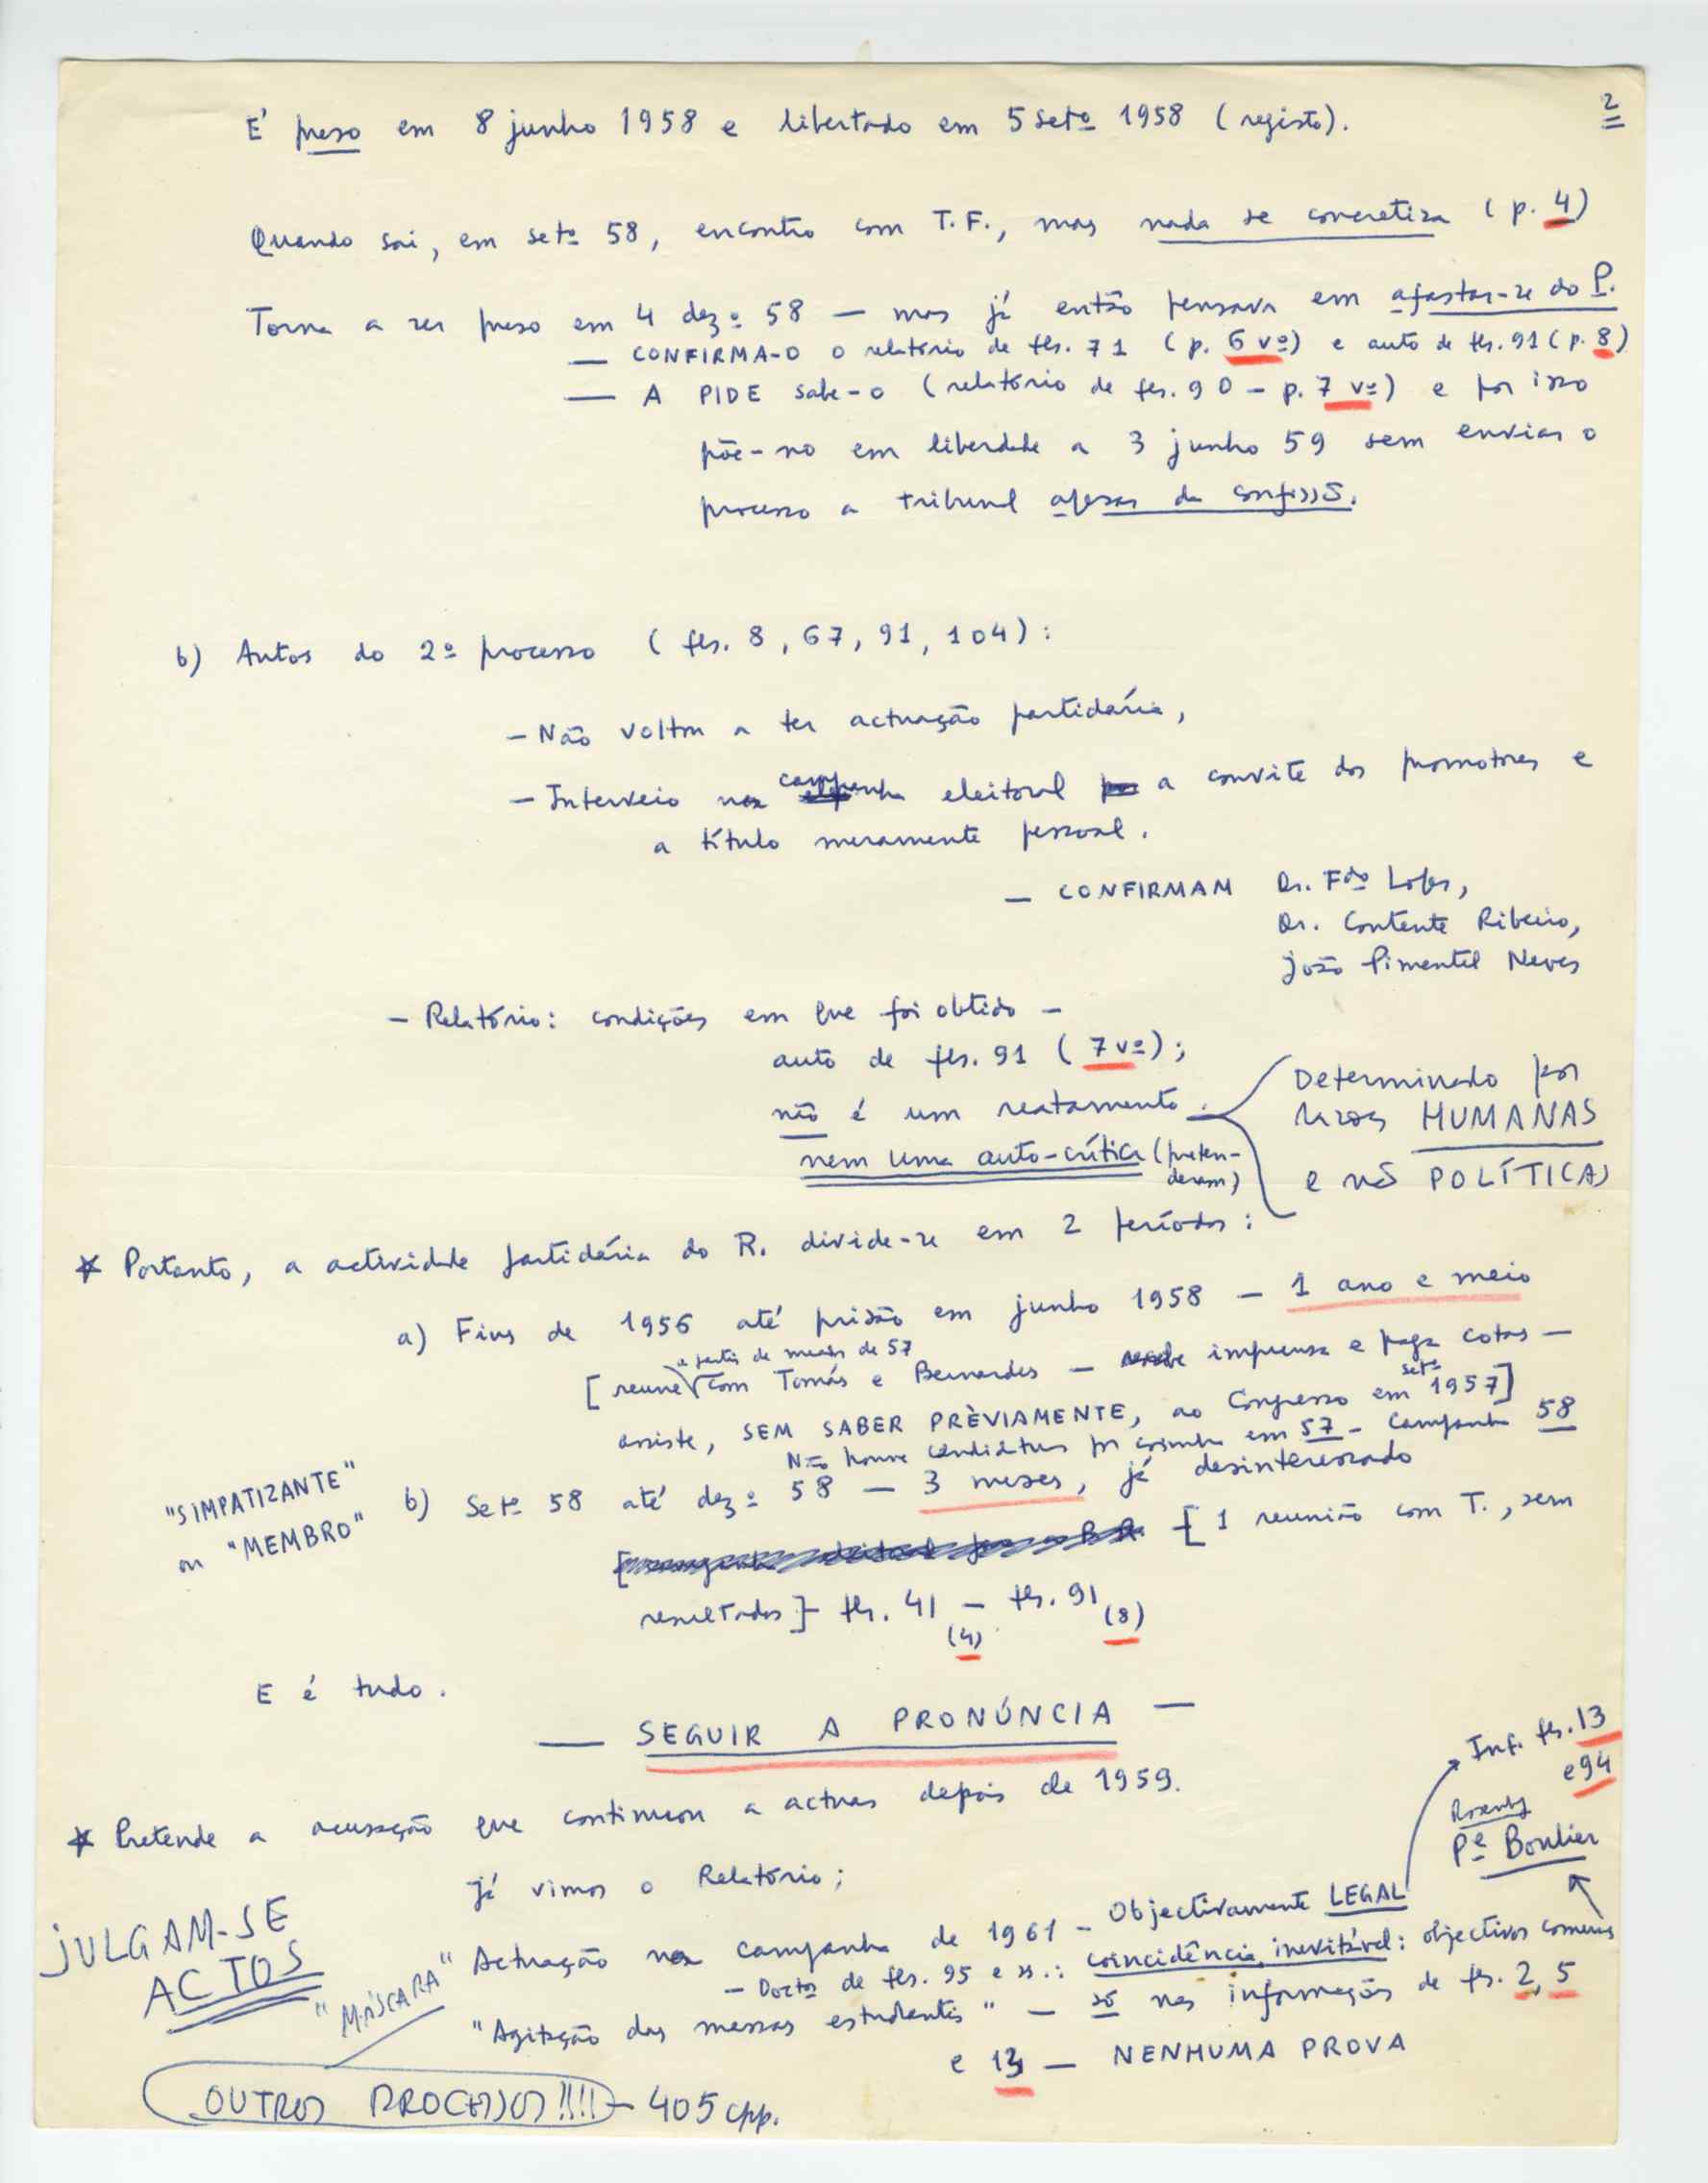 2
É preso em 8 junho 1958 e libertado em 5 setº 1958 (registo).
Quando sai, em setº 58, encontro com T.F., mas nada se concretiza (p. 4)
Torna a ser preso em 4 dezº 58 — mas já então pensava em afastar-se do P.
— CONFIRMA-O o relatório de fls. 71 (p. 6 vº) e auto de fls. 91 (p. 8)
— A PIDE sabe-o (relatório de fls. 90 - p. 7 vº) e por isso
põe-no em liberdade a 3 junho 59 sem enviar o
processo a tribunal apesar da confissão.
b) Autos do 2º processo (fls. 8, 67, 91, 104):
- Não voltou a ter actuação partidária,
- Interveio na campanha eleitoral a convite dos promotores e
a título meramente pessoal.
— CONFIRMAM Dr. Fdo Lopes,
Dr. Contente Ribeiro,
João Pimentel Neves
- Relatório: condições em que foi obtido -
auto de fls. 91 (7 vº);
não é um reatamento
nem uma auto-crítica (preten-
deram)
Determinado por
razões HUMANAS
e não POLÍTICAS
* Portanto, a actividade partidária do R. divide-se em 2 períodos:
a) Fins de 1956 até prisão em junho 1958 — 1 ano e meio
a partir de meados de 57
[reune com Tomás e Bernardes — recebe imprensa e paga cotas —
assiste, SEM SABER PRÈVIAMENTE, ao Congresso em setº 1957]
Não houve candidatura por Coimbra em 57 - Campanha 58
"SIMPATIZANTE"
ou "MEMBRO"
b) Setº 58 até dezº 58 — 3 meses, já desinteressado
[1 reunião com T., sem
resultados] - fls. 41 — fls. 91
(4) (8)
E é tudo.
— SEGUIR A PRONÚNCIA —
* Pretende a acusação que continuou a actuar depois de 1959.
Já vimos o Relatório;
Inf. fls. 13
e 94
Pe Boulier
JULGAM-SE
ACTOS
"MÁSCARA"
Actuação na campanha de 1961 - Objectivamente LEGAL
- Doctos de fls. 95 e ss.: coincidência inevitável: objectivos comuns
"Agitação das massas estudantis" — só nas informações de fls. 2, 5
e 13 — NENHUMA PROVA
OUTROS PROCESSOS!!!! - 405 cpp.